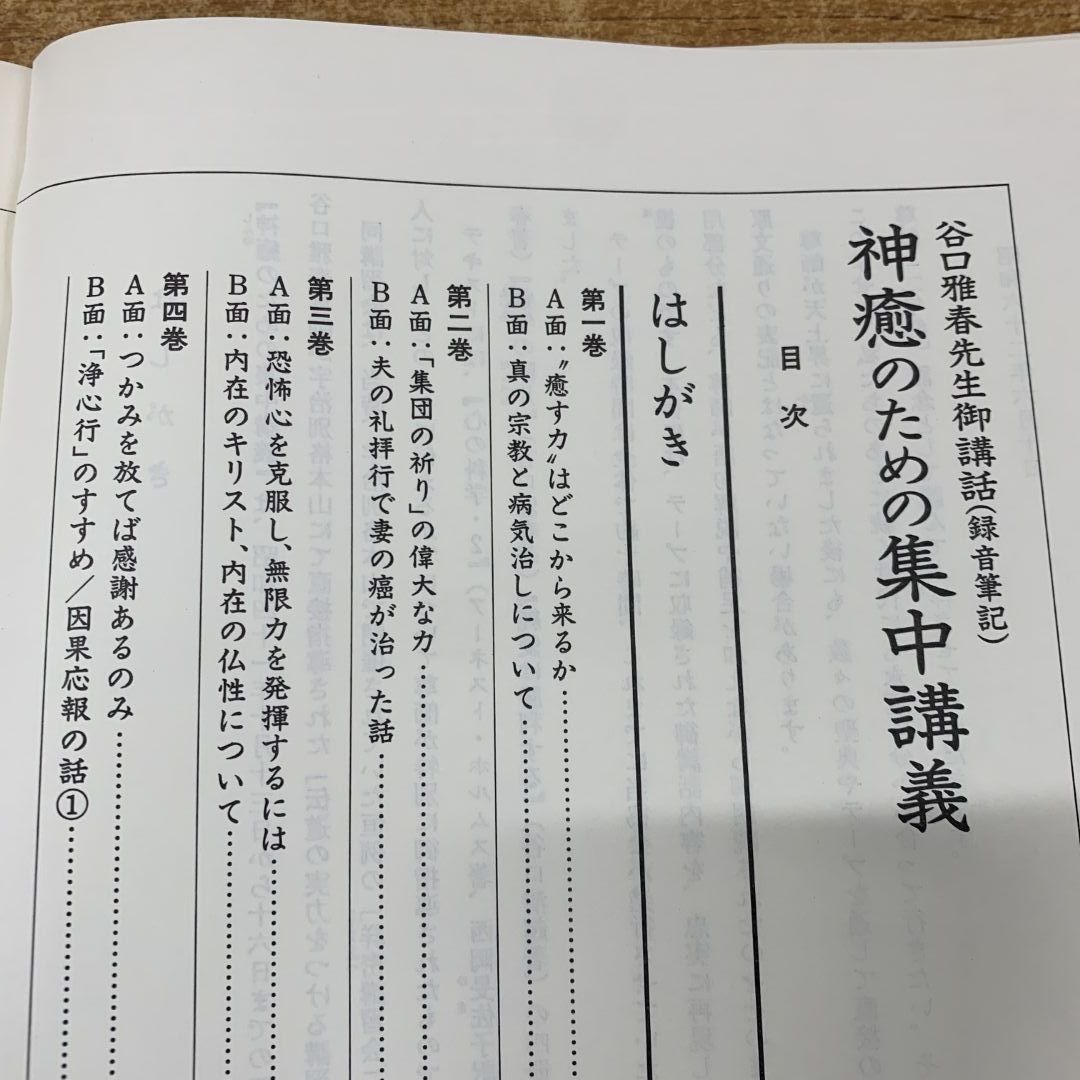 谷口雅春先生御講話（録音筆記）
神癒のための集中講義
目次
はしがき
第一巻
A面：〝癒す力〟はどこから来るか…………………
B面：真の宗教と病気治しについて…………………
第二巻
A面：「集団の祈り」の偉大な力…………………
B面：夫の礼拝行で妻の癌が治った話…………………
第三巻
A面：恐怖心を克服し、無限力を発揮するには…………
B面：内在のキリスト、内在の仏性について…………
第四巻
A面：つかみを放てば感謝あるのみ…………………
B面：「浄心行」のすすめ／因果応報の話①…………